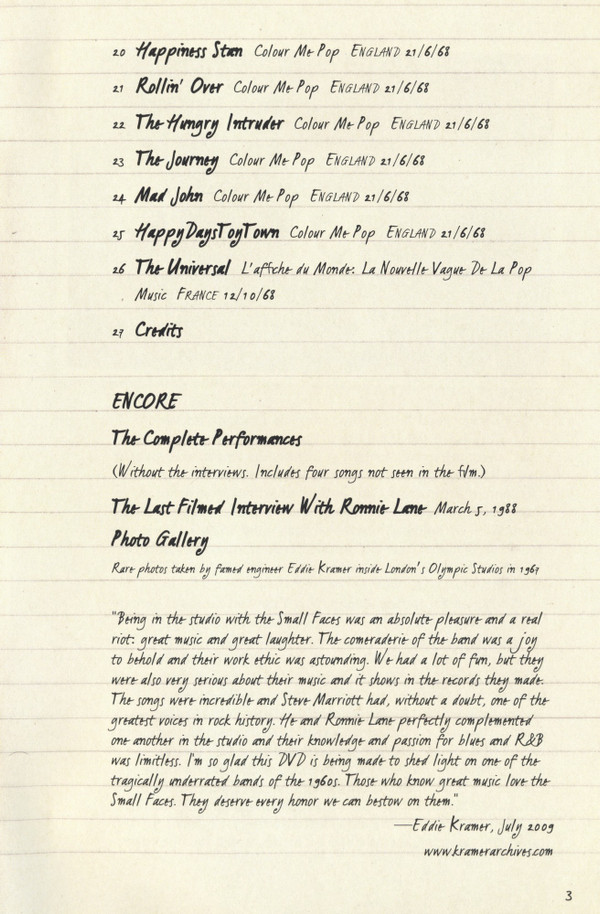 20 Happiness Stan Colour Me Pop ENGLAND 21/6/68
21 Rollin' Over Colour Me Pop ENGLAND 21/6/68
22 The Hungry Intruder Colour Me Pop ENGLAND 21/6/68
23 The Journey Colour Me Pop ENGLAND 21/6/68
24 Mad John Colour Me Pop ENGLAND 21/6/68
25 HappyDaysToyTown Colour Me Pop ENGLAND 21/6/68
26 The Universal L'affiche du Monde: La Nouvelle Vague De La Pop
Music FRANCE 12/10/68
27 Credits
ENCORE
The Complete Performances
(Without the interviews. Includes four songs not seen in the film.)
The Last Filmed Interview With Ronnie Lane March 5, 1988
Photo Gallery
Rare photos taken by famed engineer Eddie Kramer inside London's Olympic Studios in 1967
"Being in the studio with the Small Faces was an absolute pleasure and a real
riot: great music and great laughter. The comeraderie of the band was a joy
to behold and their work ethic was astounding. We had a lot of fun, but they
were also very serious about their music and it shows in the records they made.
The songs were incredible and Steve Marriott had, without a doubt, one of the
greatest voices in rock history. He and Ronnie Lane perfectly complemented
one another in the studio and their knowledge and passion for blues and R&B
was limitless. I'm so glad this DVD is being made to shed light on one of the
tragically underrated bands of the 1960s. Those who know great music love the
Small Faces. They deserve every honor we can bestow on them."
—Eddie Kramer, July 2009
www.kramerarchives.com
3